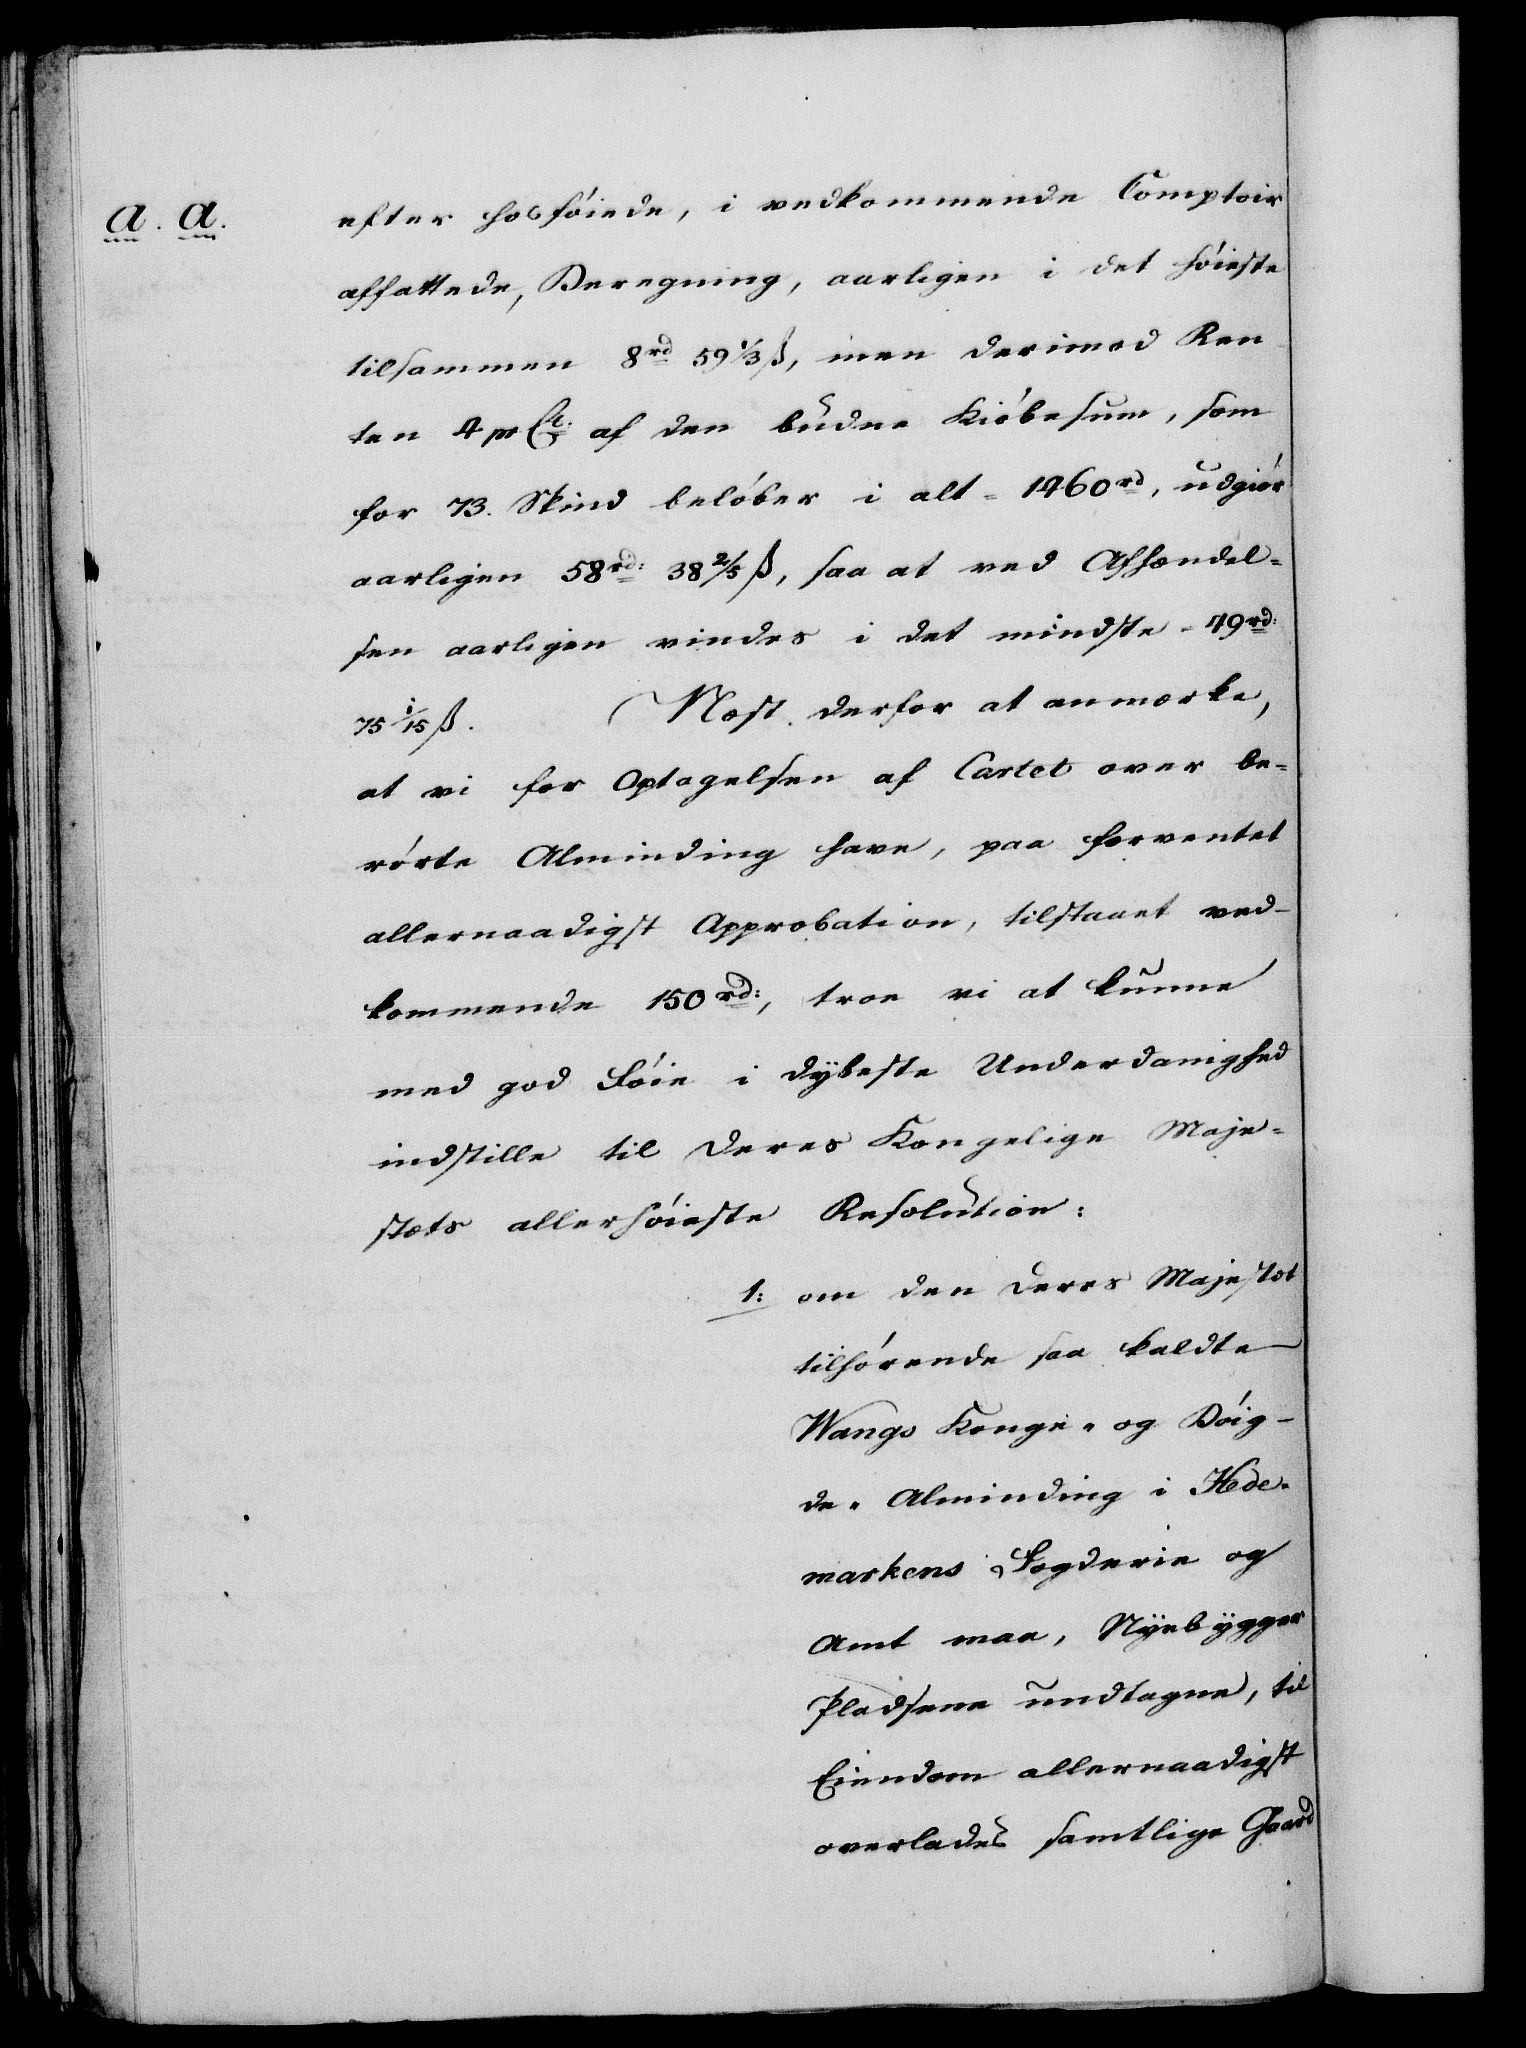 a. a.
efter hosføiede, i vedkommende Comptoir
affattede, Beregning, aarligen i det høieste
tilsammen 8rd 59 1/3 ß, men derimod Ren
ten 4 pr Ct. af den budne Kiøbesum, som
for 73. Skind beløber i alt = 1460rd, udgiør
aarligen 58rd: 38 2/5 ß, saa at ved Afhændel=
sen aarligen vindes i det mindste - 49rd:
75 1/15 ß. Næst derfor at anmærke,
at vi for Optagelsen af Cartet over be=
rørte Alminding have, paa forventet
allernaadigst Approbation, tilstaaet ved-
kommende 150rd:, troe vi at kunne
med god Føie i dÿbeste Underdanighed
indstille til Deres Kongelige Maje=
stæts allerhøieste Resolution:
1: om den Deres Majestæt
tilhørende saa kaldte
Wangs Konge- og Bøig-
de- Alminding i Hede-
markens Fogderie og
Amt maa, Nÿebÿgger
Pladsene undtagne, til
Eiendom allernaadigst
overlades samtlige Gaard